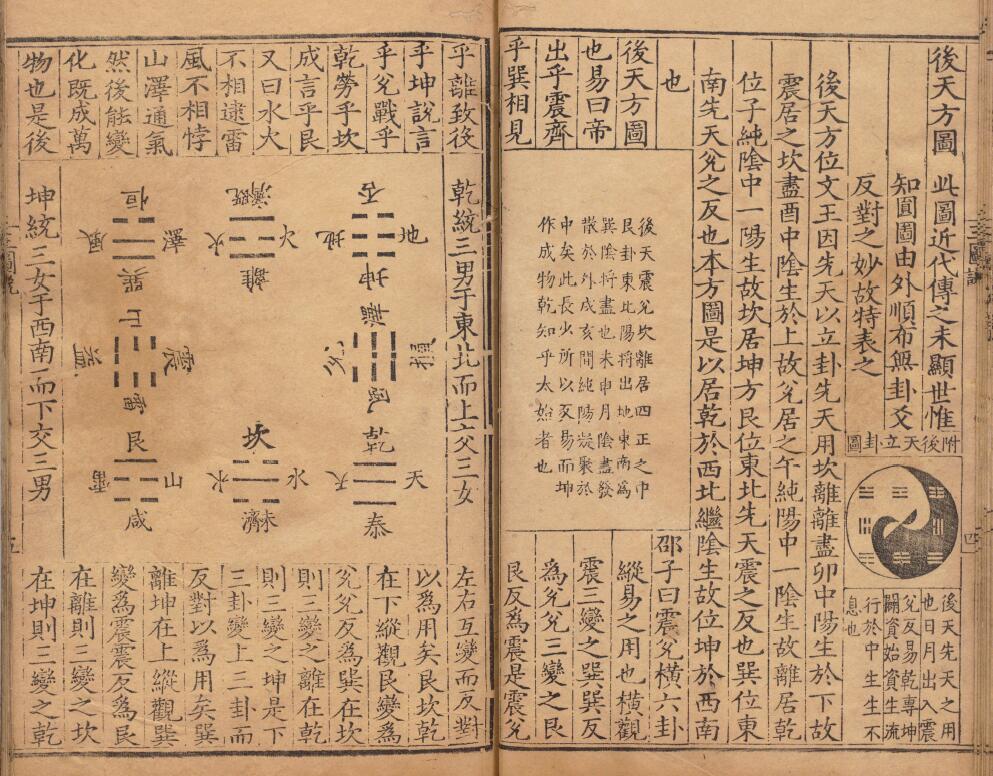 後天方圖
此圖近代傳之未顯世惟
知圓圖由外順布無卦爻
反對之妙故特表之
附後天立卦圖
後天先天之用
也日月出入震
兌反易乾專坤
闢資始資生流
行於中生生不
息也
後天方位文王因先天以立卦先天用坎離離盡卯中陽生於下故
震居之坎盡酉中陰生於上故兌居之午純陽中一陰生故離居乾
位子純陰中一陽生故坎居坤方艮位東北先天震之反也巽位東
南先天兌之反也本方圖是以居乾於西北繼陰生故位坤於西南
也
後天方圖
也易曰帝
出乎震齊
乎巽相見
後天震兌坎離居四正之中
艮卦東北陽將出地東南為
巽陰將盡也未申月陰盡發
散於外戌亥間純陽凝聚於
中矣此長少所以反易而坤
作成物乾知乎太始者也
邵子曰震兌橫六卦
縱易之用也橫觀
震三變之巽巽反
為兌兌三變之艮
艮反為震是震兌
乎離致役
乎坤說言
乎兌戰乎
乾勞乎坎
成言乎艮
又曰水火
不相逮雷
風不相悖
山澤通氣
然後能變
化既成萬
物也是後
乾統三男于東北而上交三女
否
地
地
坤
既濟
火
火
離
恒
澤
風
巽
損
兌
震
益
雷
乾
天
天
泰
坎
水
水
未濟
艮
山
雷
咸
坤統三女于西南而下交三男
左右互變而反對
以為用矣艮坎乾
在下縱觀艮變為
兌兌反為巽在坎
則三變之離在乾
則三變之坤是下
三卦變上三卦而
反對以為用矣巽
離坤在上縱觀巽
變為震震反為艮
在離則三變之坎
在坤則三變之乾
圖說
四
五